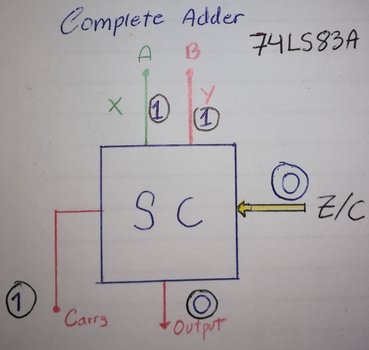 Complete Adder
74LS83A
A B
X 1 Y 1
0
S C
Z/C
1 0
Carry Output